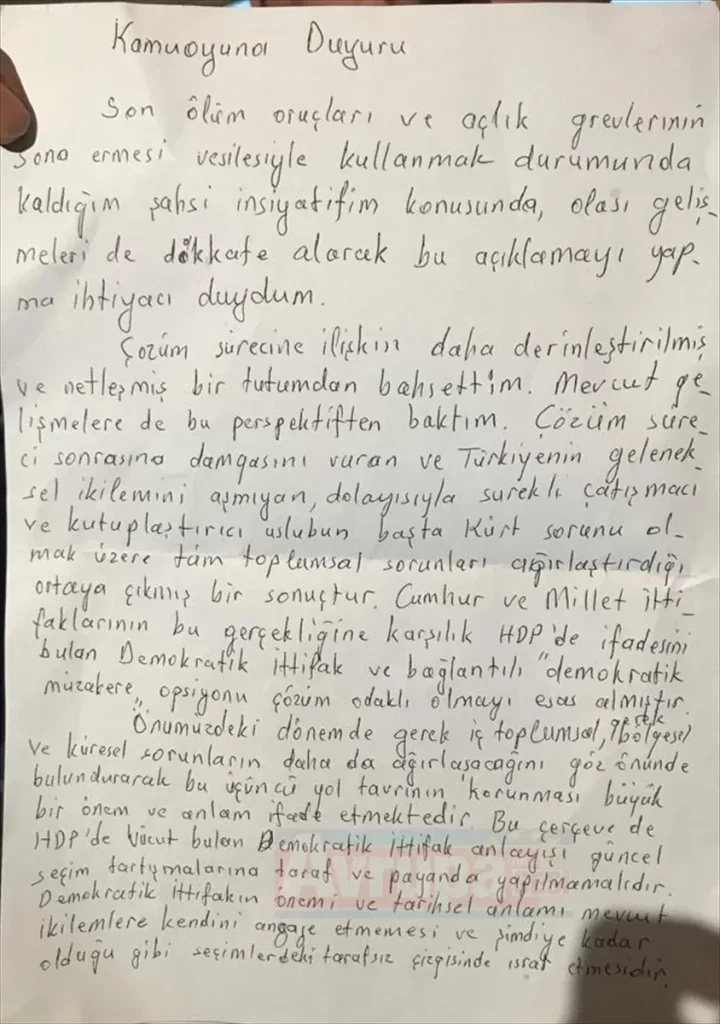 Kamuoyuna Duyuru
Son ölüm oruçları ve açlık grevlerinin
sona ermesi vesilesiyle kullanmak durumunda
kaldığım şahsi insiyatifim konusunda, olası geliş-
meleri de dikkate alarak bu açıklamayı yap-
ma ihtiyacı duydum.
Çözüm sürecine ilişkin daha derinleştirilmiş
ve netleşmiş bir tutumdan bahsettim. Mevcut ge-
lişmelere de bu perspektiften baktım. Çözüm süre-
ci sonrasına damgasını vuran ve Türkiyenin gelenek-
sel ikilemini aşmıyan, dolayısıyla sürekli çatışmacı
ve kutuplaştırıcı uslubun başta Kürt sorunu ol-
mak üzere tüm toplumsal sorunları ağırlaştırdığı
ortaya çıkmış bir sonuçtur. Cumhur ve Millet itti-
faklarının bu gerçekliğine karşılık HDP'de ifadesini
bulan Demokratik ittifak ve bağlantılı "demokratik
müzakere" opsiyonu çözüm odaklı olmayı esas almıştır.
Önümüzdeki dönemde gerek iç toplumsal, gerek bölgesel
ve küresel sorunların daha da ağırlaşacağını göz önünde
bulundurarak bu üçüncü yol tavrının korunması büyük
bir önem ve anlam ifade etmektedir. Bu çerçeve de
HDP'de vücut bulan Demokratik ittifak anlayışı güncel
seçim tartışmalarına taraf ve payanda yapılmamalıdır.
Demokratik ittifakın önemi ve tarihsel anlamı mevcut
ikilemlere kendini angaje etmemesi ve şimdiye kadar
olduğu gibi seçimlerdeki tarafsız çizgisinde ısrar etmesidir.